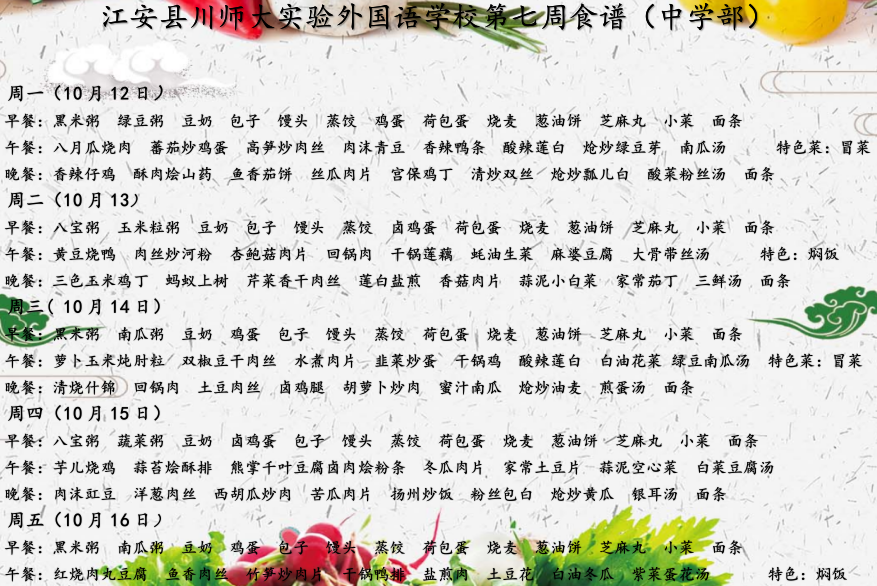 江安县川师大实验外国语学校第七周食谱（中学部）
周一（10月12日）
早餐：黑米粥 绿豆粥 豆奶 包子 馒头 蒸饺 鸡蛋 荷包蛋 烧麦 葱油饼 芝麻丸 小菜 面条
午餐：八月瓜烧肉 蕃茄炒鸡蛋 高笋炒肉丝 肉沫青豆 香辣鸭条 酸辣莲白 炝炒绿豆芽 南瓜汤 特色菜：冒菜
晚餐：香辣仔鸡 酥肉烩山药 鱼香茄饼 丝瓜肉片 宫保鸡丁 清炒双丝 炝炒瓢儿白 酸菜粉丝汤 面条
周二（10月13）
早餐：八宝粥 玉米粒粥 豆奶 包子 馒头 蒸饺 卤鸡蛋 荷包蛋 烧麦 葱油饼 芝麻丸 小菜 面条
午餐：黄豆烧鸭 肉丝炒河粉 杏鲍菇肉片 回锅肉 干锅莲藕 蚝油生菜 麻婆豆腐 大骨带丝汤 特色：焖饭
晚餐：三色玉米鸡丁 蚂蚁上树 芹菜香干肉丝 莲白盐煎 香菇肉片 蒜泥小白菜 家常茄丁 三鲜汤 面条
周三( 10月14日）
早餐：黑米粥 南瓜粥 豆奶 鸡蛋 包子 馒头 蒸饺 荷包蛋 烧麦 葱油饼 芝麻丸 小菜 面条
午餐：萝卜玉米炖肘粒 双椒豆干肉丝 水煮肉片 韭菜炒蛋 干锅鸡 酸辣莲白 白油花菜 绿豆南瓜汤 特色菜：冒菜
晚餐：清烧什锦 回锅肉 土豆肉丝 卤鸡腿 胡萝卜炒肉 蜜汁南瓜 炝炒油麦 煎蛋汤 面条
周四（10月15日）
早餐：八宝粥 蔬菜粥 豆奶 卤鸡蛋 包子 馒头 蒸饺 荷包蛋 烧麦 葱油饼 芝麻丸 小菜 面条
午餐：芋儿烧鸡 蒜苔烩酥排 熊掌千叶豆腐卤肉烩粉条 冬瓜肉片 家常土豆片 蒜泥空心菜 白菜豆腐汤
晚餐：肉沫豇豆 洋葱肉丝 西胡瓜炒肉 苦瓜肉片 扬州炒饭 粉丝包白 炝炒黄瓜 银耳汤 面条
周五（10月16日）
早餐：黑米粥 南瓜粥 豆奶 鸡蛋 包子 馒头 蒸饺 荷包蛋 烧麦 葱油饼 芝麻丸 小菜 面条
午餐：红烧肉丸豆腐 鱼香肉丝 竹笋炒肉片 干锅鸭排 盐煎肉 土豆花 白油冬瓜 紫菜蛋花汤 特色：焖饭